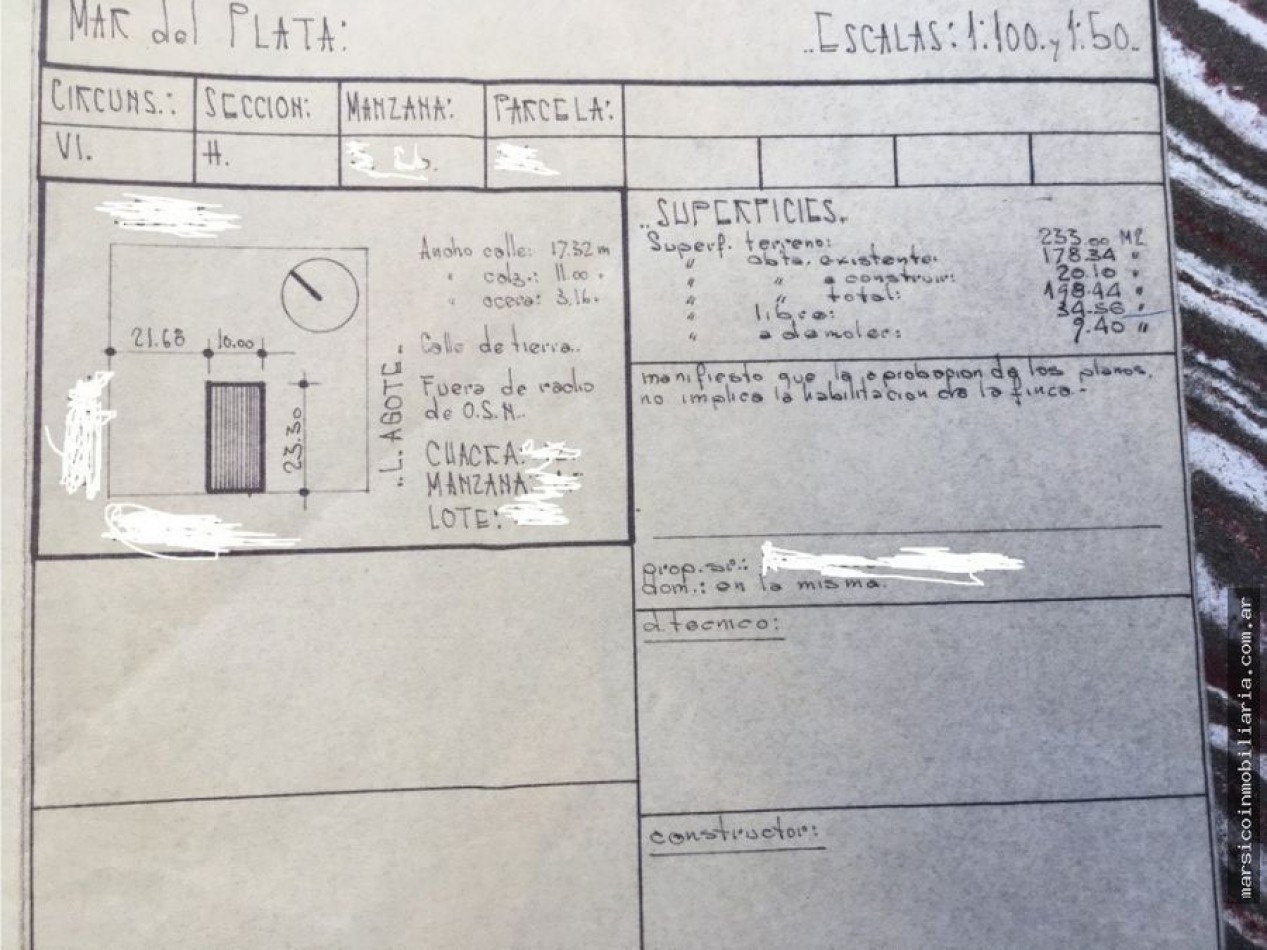 MAR del PLATA:
..ESCALAS: 1:100. y 1:50..
CIRCUNS.: SECCION: MANZANA: PARCELA:
VI. H.
21.68 10.00
23.30
..L. AGOTE..
Ancho calle: 17.32 m
" calz.: 11.00 "
" acera: 3.16.
Calle de tierra..
Fuera de radio
de O.S.N..
CHACRA:
MANZANA
LOTE:
..SUPERFICIES.
Superf. terreno: 233.00 M2
" obta. existente: 178.34 "
" " a construir: 20.10 "
" " total: 198.44 "
" libre: 34.56 "
" a demoler: 9.40 "
manifiesto que la aprobacion de los planos,
no implica la habilitacion de la finca.-
prop. sr.:
dom.: en la misma.
d. tecnico:
constructor:
marsicoinmobiliaria.com.ar